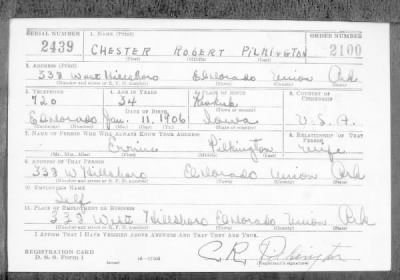 SERIAL NUMBER 1. NAME (Print) ORDER NUMBER
2439 CHESTER ROBERT PILKINGTON 2100
(First) (Middle) (Last)
2. ADDRESS (Print)
338 West Hillsboro Eldorado Union Ark
(Number and street or R. F. D. number) (Town) (County) (State)
3. TELEPHONE 4. AGE IN YEARS 5. PLACE OF BIRTH 6. COUNTRY OF CITIZENSHIP
720 34 Keokuk
DATE OF BIRTH (Town or county)
Eldorado Jan. 11, 1906 Iowa U.S.A.
(Exchange) (Number) (Mo.) (Day) (Yr.) (State or country)
7. NAME OF PERSON WHO WILL ALWAYS KNOW YOUR ADDRESS 8. RELATIONSHIP OF THAT PERSON
Pilkington wife
(Mr., Mrs., Miss) (First) (Middle) (Last)
9. ADDRESS OF THAT PERSON
338 W Hillsboro Eldorado Union Ark
(Number and street or R. F. D. number) (Town) (County) (State)
10. EMPLOYER'S NAME
Self
11. PLACE OF EMPLOYMENT OR BUSINESS
338 West Hillsboro Eldorado Union Ark
(Number and street or R. F. D. number) (Town) (County) (State)
I AFFIRM THAT I HAVE VERIFIED ABOVE ANSWERS AND THAT THEY ARE TRUE.
REGISTRATION CARD
D. S. S. FORM 1 C.R. Pilkington
(Registrant's signature)